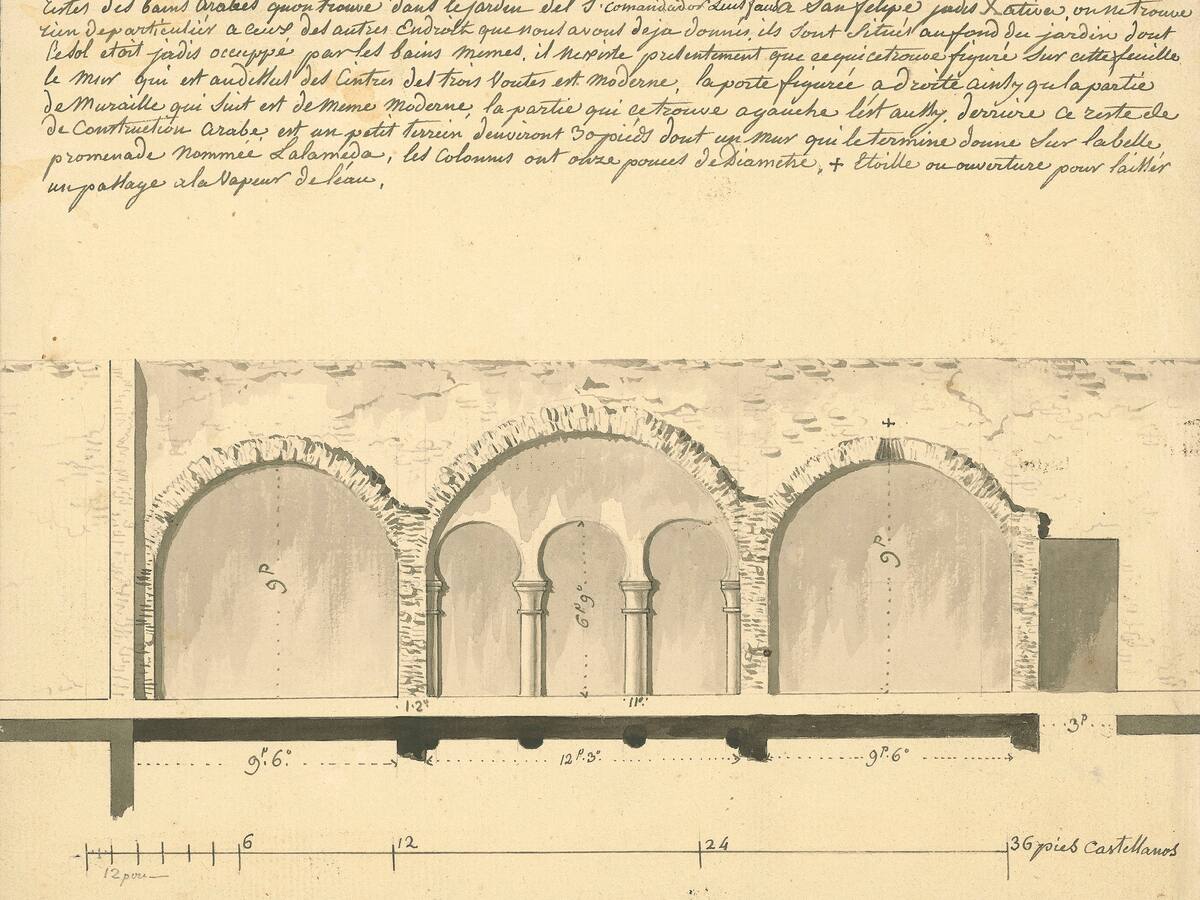 restes des bains Arabes qu'on trouve dans le jardin del Sr. Comandador Luis à San felipe jadis Xativa, on ne trouve
rien de particuliér a ceux des autres Endroits que nous avons deja donnés, ils sont Situés au fond du jardin dont
le sol etoit jadis occuppé par les bains mêmes, il n'existe presentement que ce qui ce trouve figuré sur cette feuille
le mur qui est au dessus des Cintres des trois Voutes est Moderne, la porte figurée a droite ainsy que la partie
de Muraille qui suit est de meme Moderne, la partie qui ce trouve a gauche l'est aussy, derriere ce reste de
de Construction Arabe, est un petit terrein d'enveront 30 pieds dont un mur qui le termine donne sur la belle
promenade Nommée Lalameda, les Colonnes ont onze pouces de Diametre, + Etoille ou ouverture pour laisser
un passage a la Vapeur de l'eau,
+
9P
6P 9o
9P
1.2o
11o
3P
9P. 6o
12P. 3o
9P. 6o
6 12 24 36 pies Castellanos
12 pou